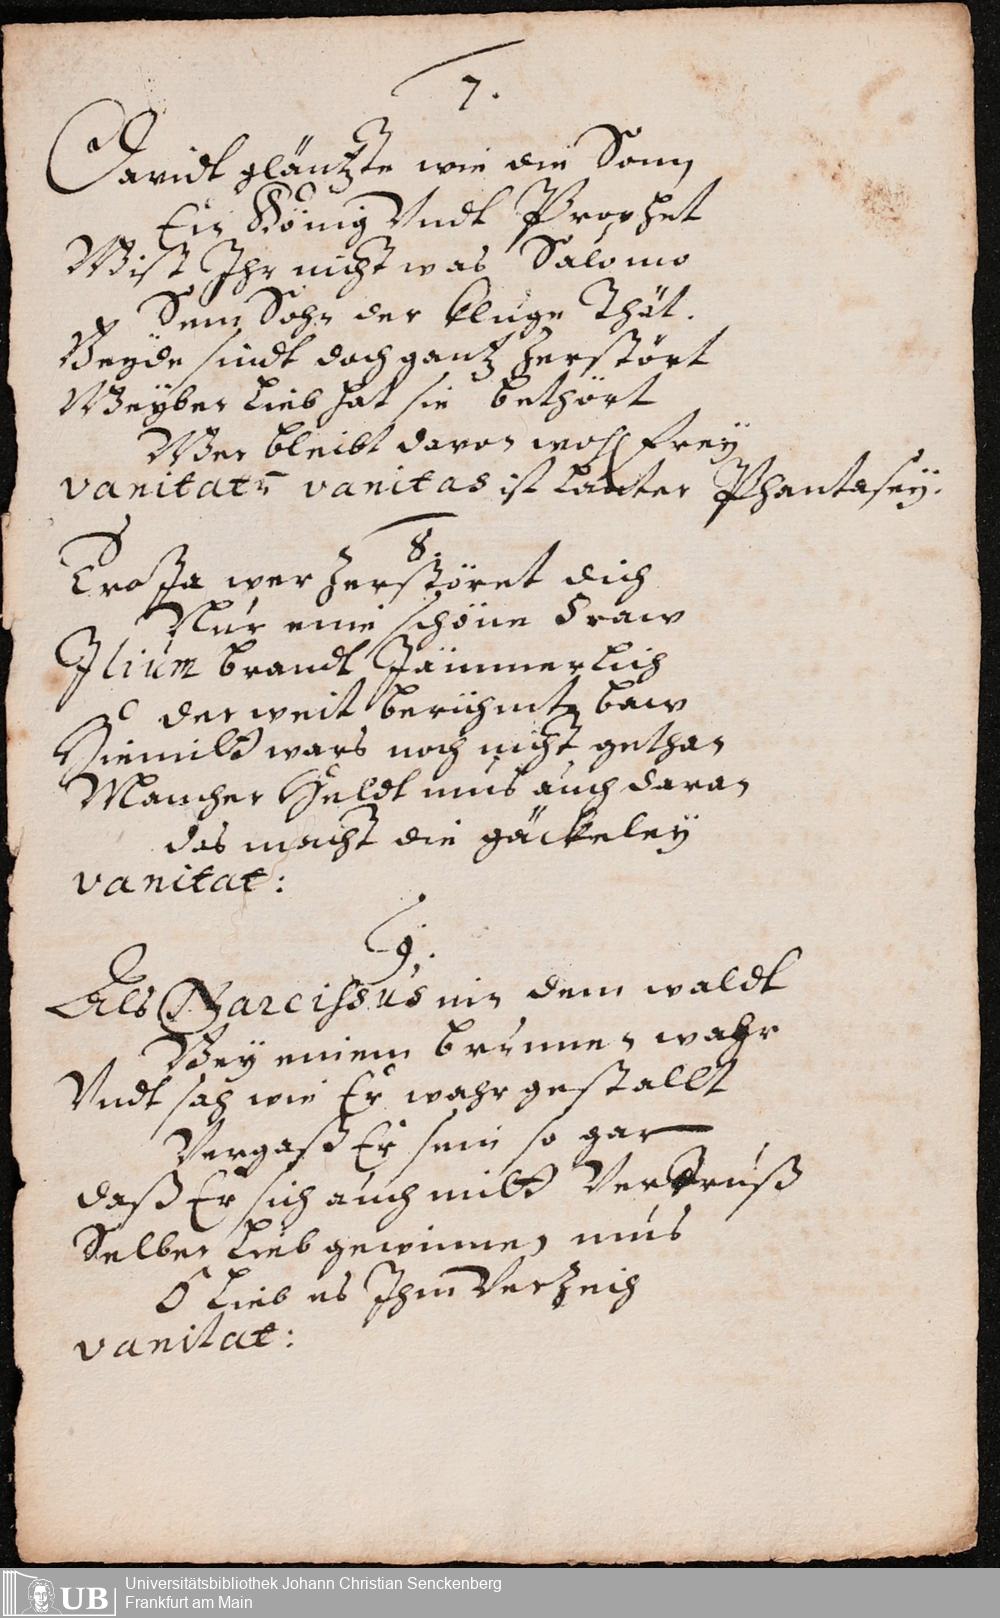 7.
Davidt gläntzte wie die Sonn,
Ein König Vndt Prophet
Wist Ihr nicht was Salomo
Sein Sohn der kluge Thät.
Beyde sindt doch gantz Zerstört
Weyber Lieb hat sie bethört
Wer bleibt davon wohl frey
vanitatũ vanitas ist Lauter Phantasey.
8.
Troja wer Zerstöret dich
Nur eine schöne Fraw
Ilium brandt Jämmerlich
der weit berühmte baw
Hiemitt wars noch nicht gethan
Mancher Heldt mus auch daran
das macht die gäckeley
vanitat:
9.
Als Narcissus in dem waldt
Bey einem brunnen wahr
Vndt sah wie Er wahr gestallt
Vergaß Er sein so gar
daß Er sich auch mitt Verdruß
Selber Lieb gewinnen mus
O Lieb es Ihm Verzeih
vanitat:
UB Universitätsbibliothek Johann Christian Senckenberg
Frankfurt am Main